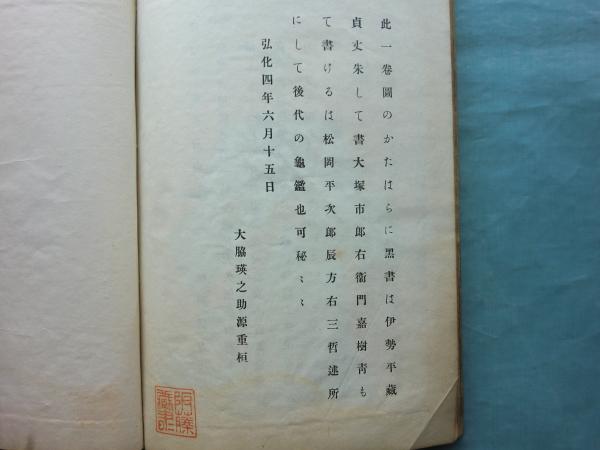 此一卷圖のかたはらに黑書は伊勢平藏
貞丈朱して書大塚市郎右衞門嘉樹靑も
て書けるは松岡平次郎辰方右三哲述所
にして後代の龜鑑也可秘〻〻
弘化四年六月十五日
大脇瑛之助源重桓